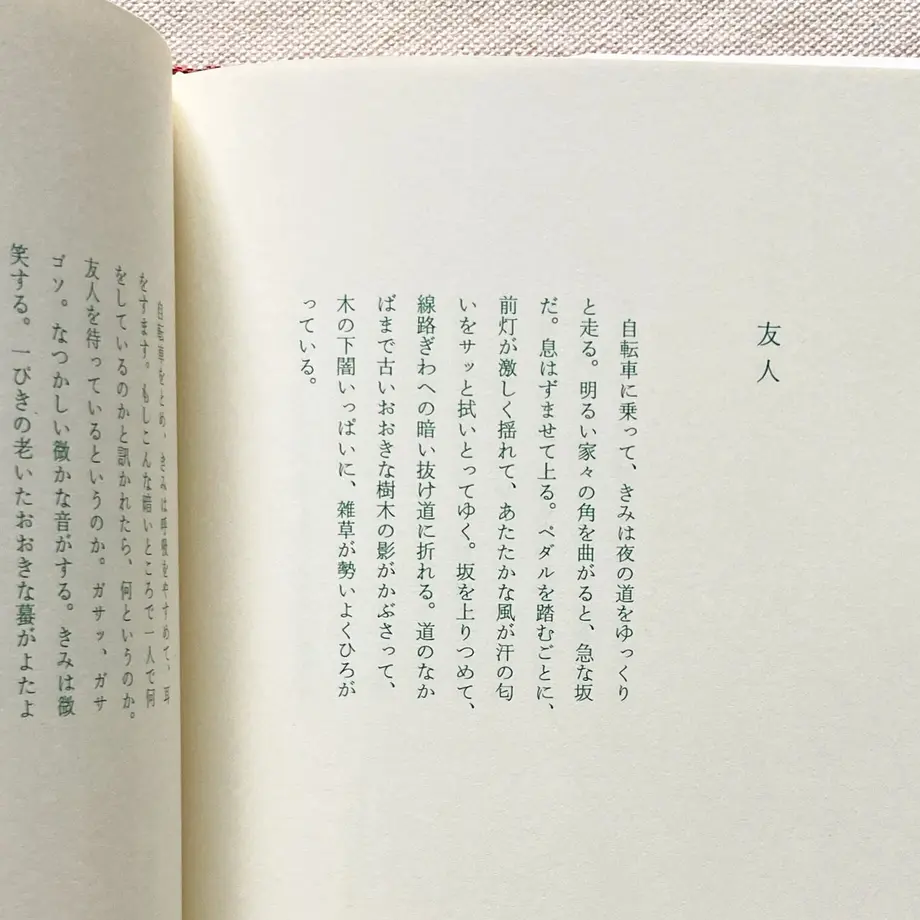 友人
自転車に乗って、きみは夜の道をゆっくり
と走る。明るい家々の角を曲がると、急な坂
だ。息はずませて上る。ペダルを踏むごとに、
前灯が激しく揺れて、あたたかな風が汗の匂
いをサッと拭いとってゆく。坂を上りつめて、
線路ぎわへの暗い抜け道に折れる。道のなか
ばまで古いおおきな樹木の影がかぶさって、
木の下闇いっぱいに、雑草が勢いよくひろが
っている。
自転車をとめ、きみは呼吸をやすめて、耳
をすます。もしこんな暗いところで一人で何
をしているのかと訊かれたら、何というのか。
友人を待っているというのか。ガサッ、ガサ
ゴソ。なつかしい微かな音がする。きみは微
笑する。一ぴきの老いたおおきな蟇がよたよ